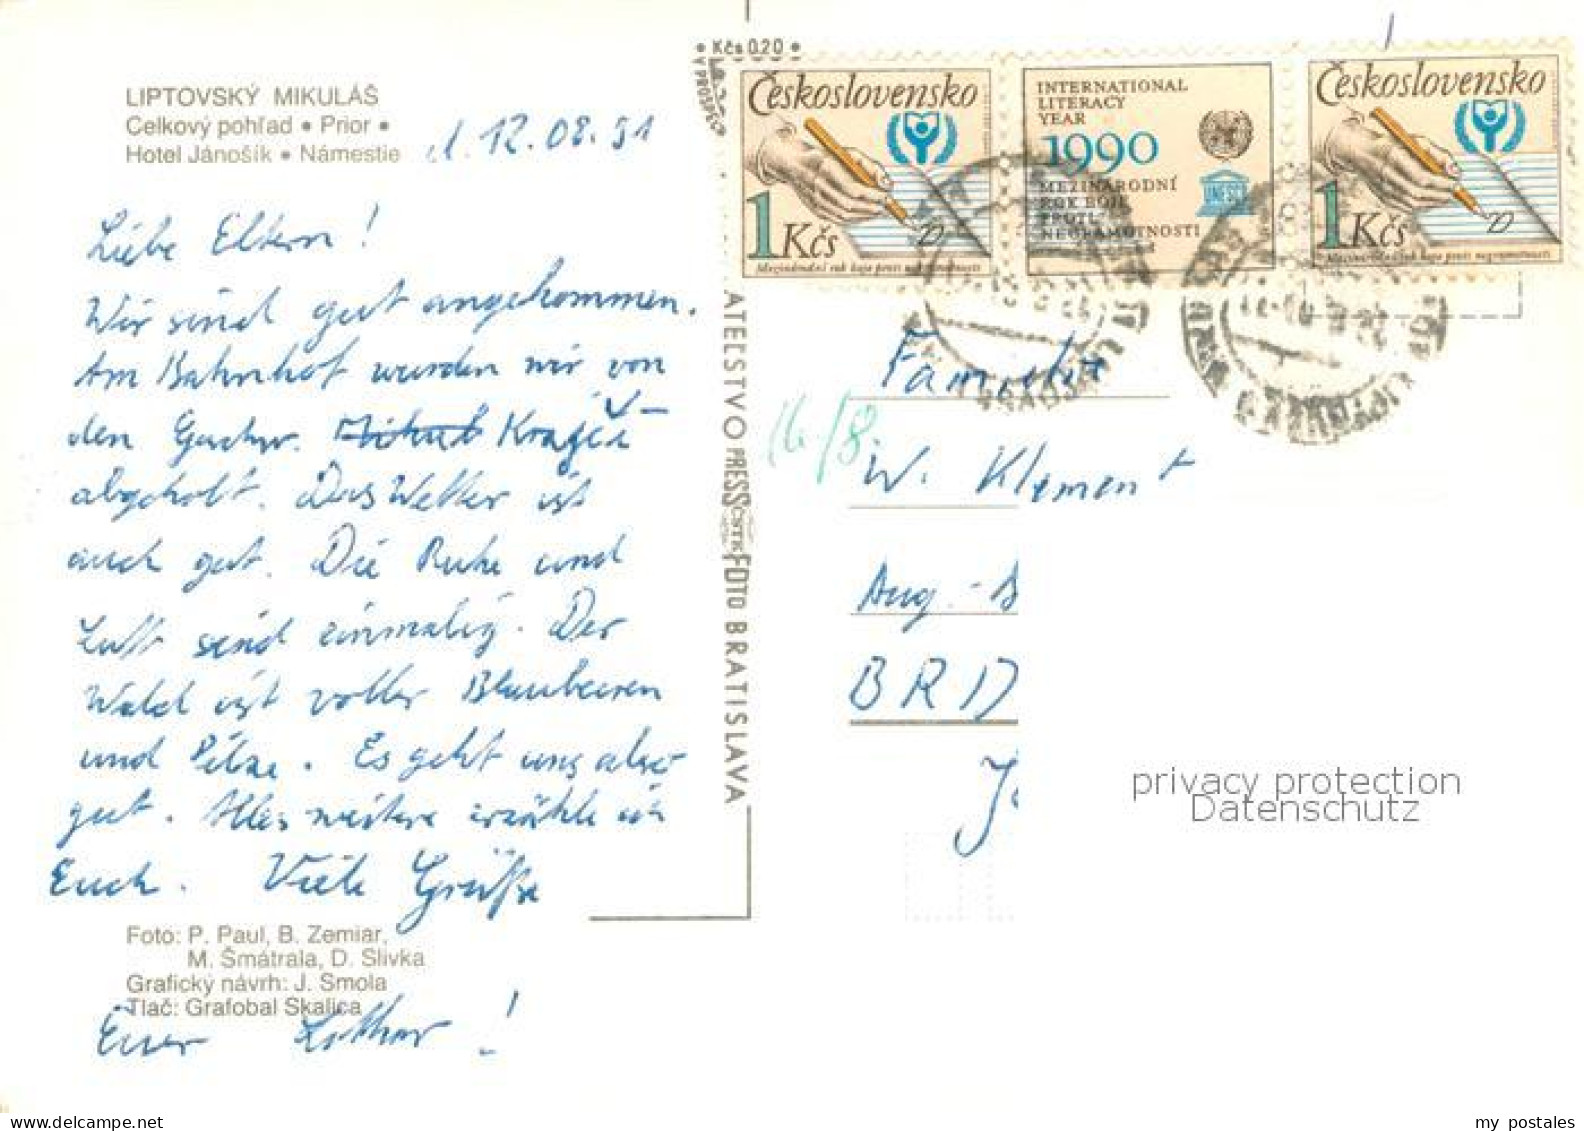 LIPTOVSKÝ MIKULÁŠ
Celkový pohľad • Prior •
Hotel Jánošík • Námestie
d. 12.08.91
Liebe Eltern!
Wir sind gut angekommen.
Am Bahnhof wurden wir von
den Gschw. Krajčí
abgeholt. Das Wetter ist
auch gut. Die Ruhe und
Luft sind einmalig. Der
Wald ist voller Blaubeeren
und Pilze. Es geht uns also
gut. Alles weitere erzähle ich
Euch. Viele Grüße
Foto: P. Paul, B. Zemiar,
M. Šmátrala, D. Slivka
Grafický návrh: J. Smola
Tlač: Grafobal Skalica
Euer Lothar!
• Kčs 0,20 •
V PROSPECH
VYDAVATEĽSTVO PRESSFOTO BRATISLAVA
ČSTK
Československo
1Kčs
Mezinárodní rok boje proti negramotnosti
INTERNATIONAL
LITERACY
YEAR
1990
MEZINÁRODNÍ
ROK BOJE
PROTI
NEGRAMOTNOSTI
UNESCO
Československo
1Kčs
Mezinárodní rok boje proti negramotnosti
Familie
16/8
W. Klement
Aug.-B
BRD
privacy protection
Datenschutz
my postales